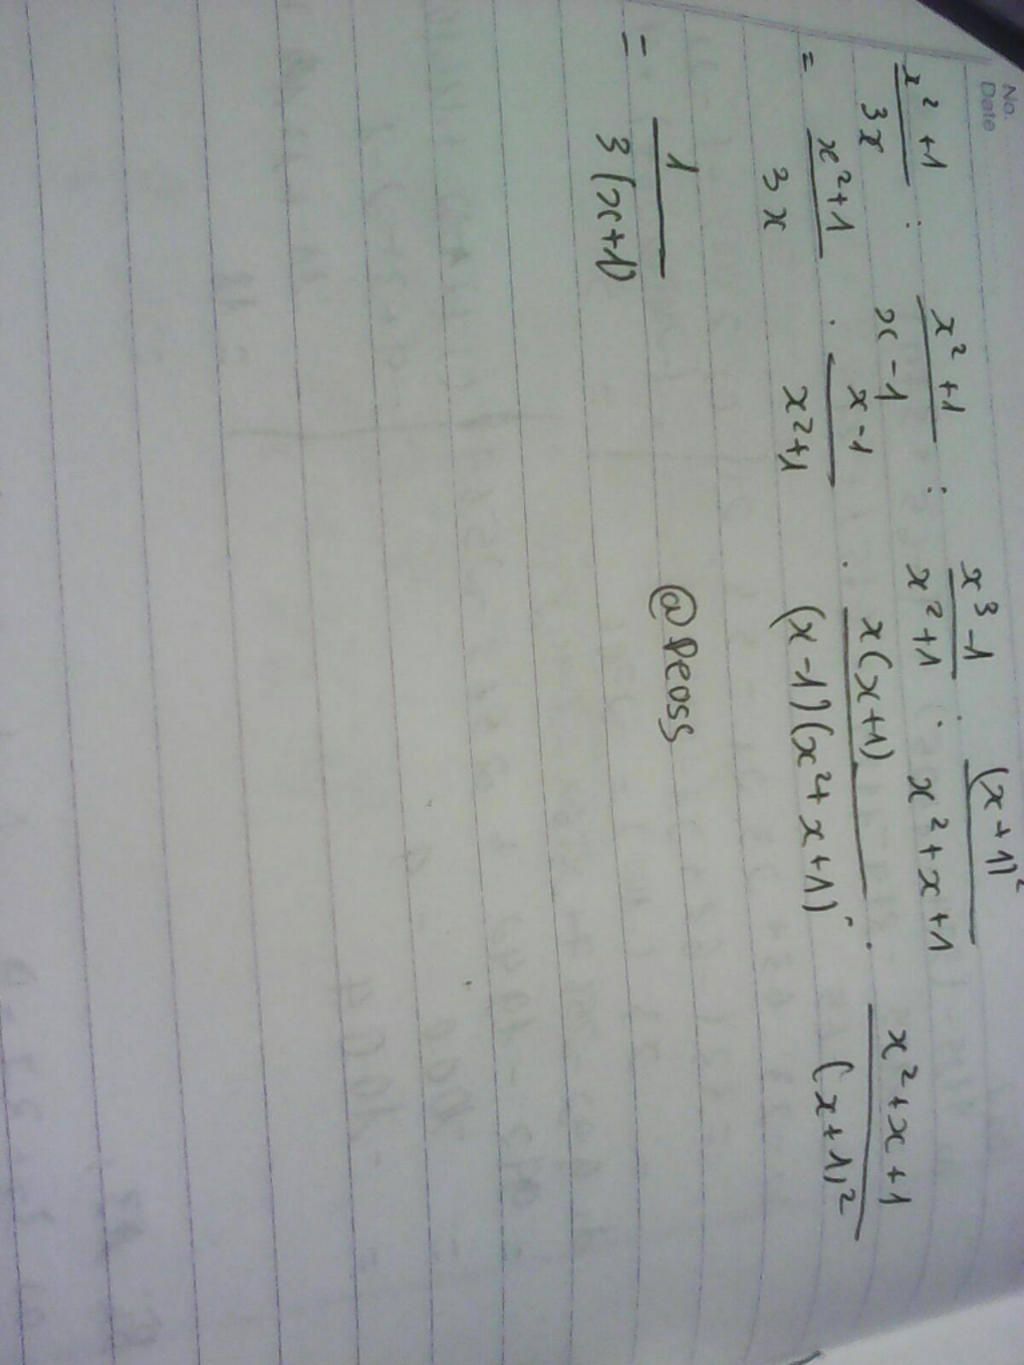 No.
Date
x² + 1 / 3x : x² + 1 / x - 1 : x³ - 1 / x² + 1 : (x + 1)² / x² + x + 1
= x² + 1 / 3x . x - 1 / x² + 1 . x(x + 1) / (x - 1)(x² + x + 1) . x² + x + 1 / (x + 1)²
= 1 / 3(x + 1)
@Peoss